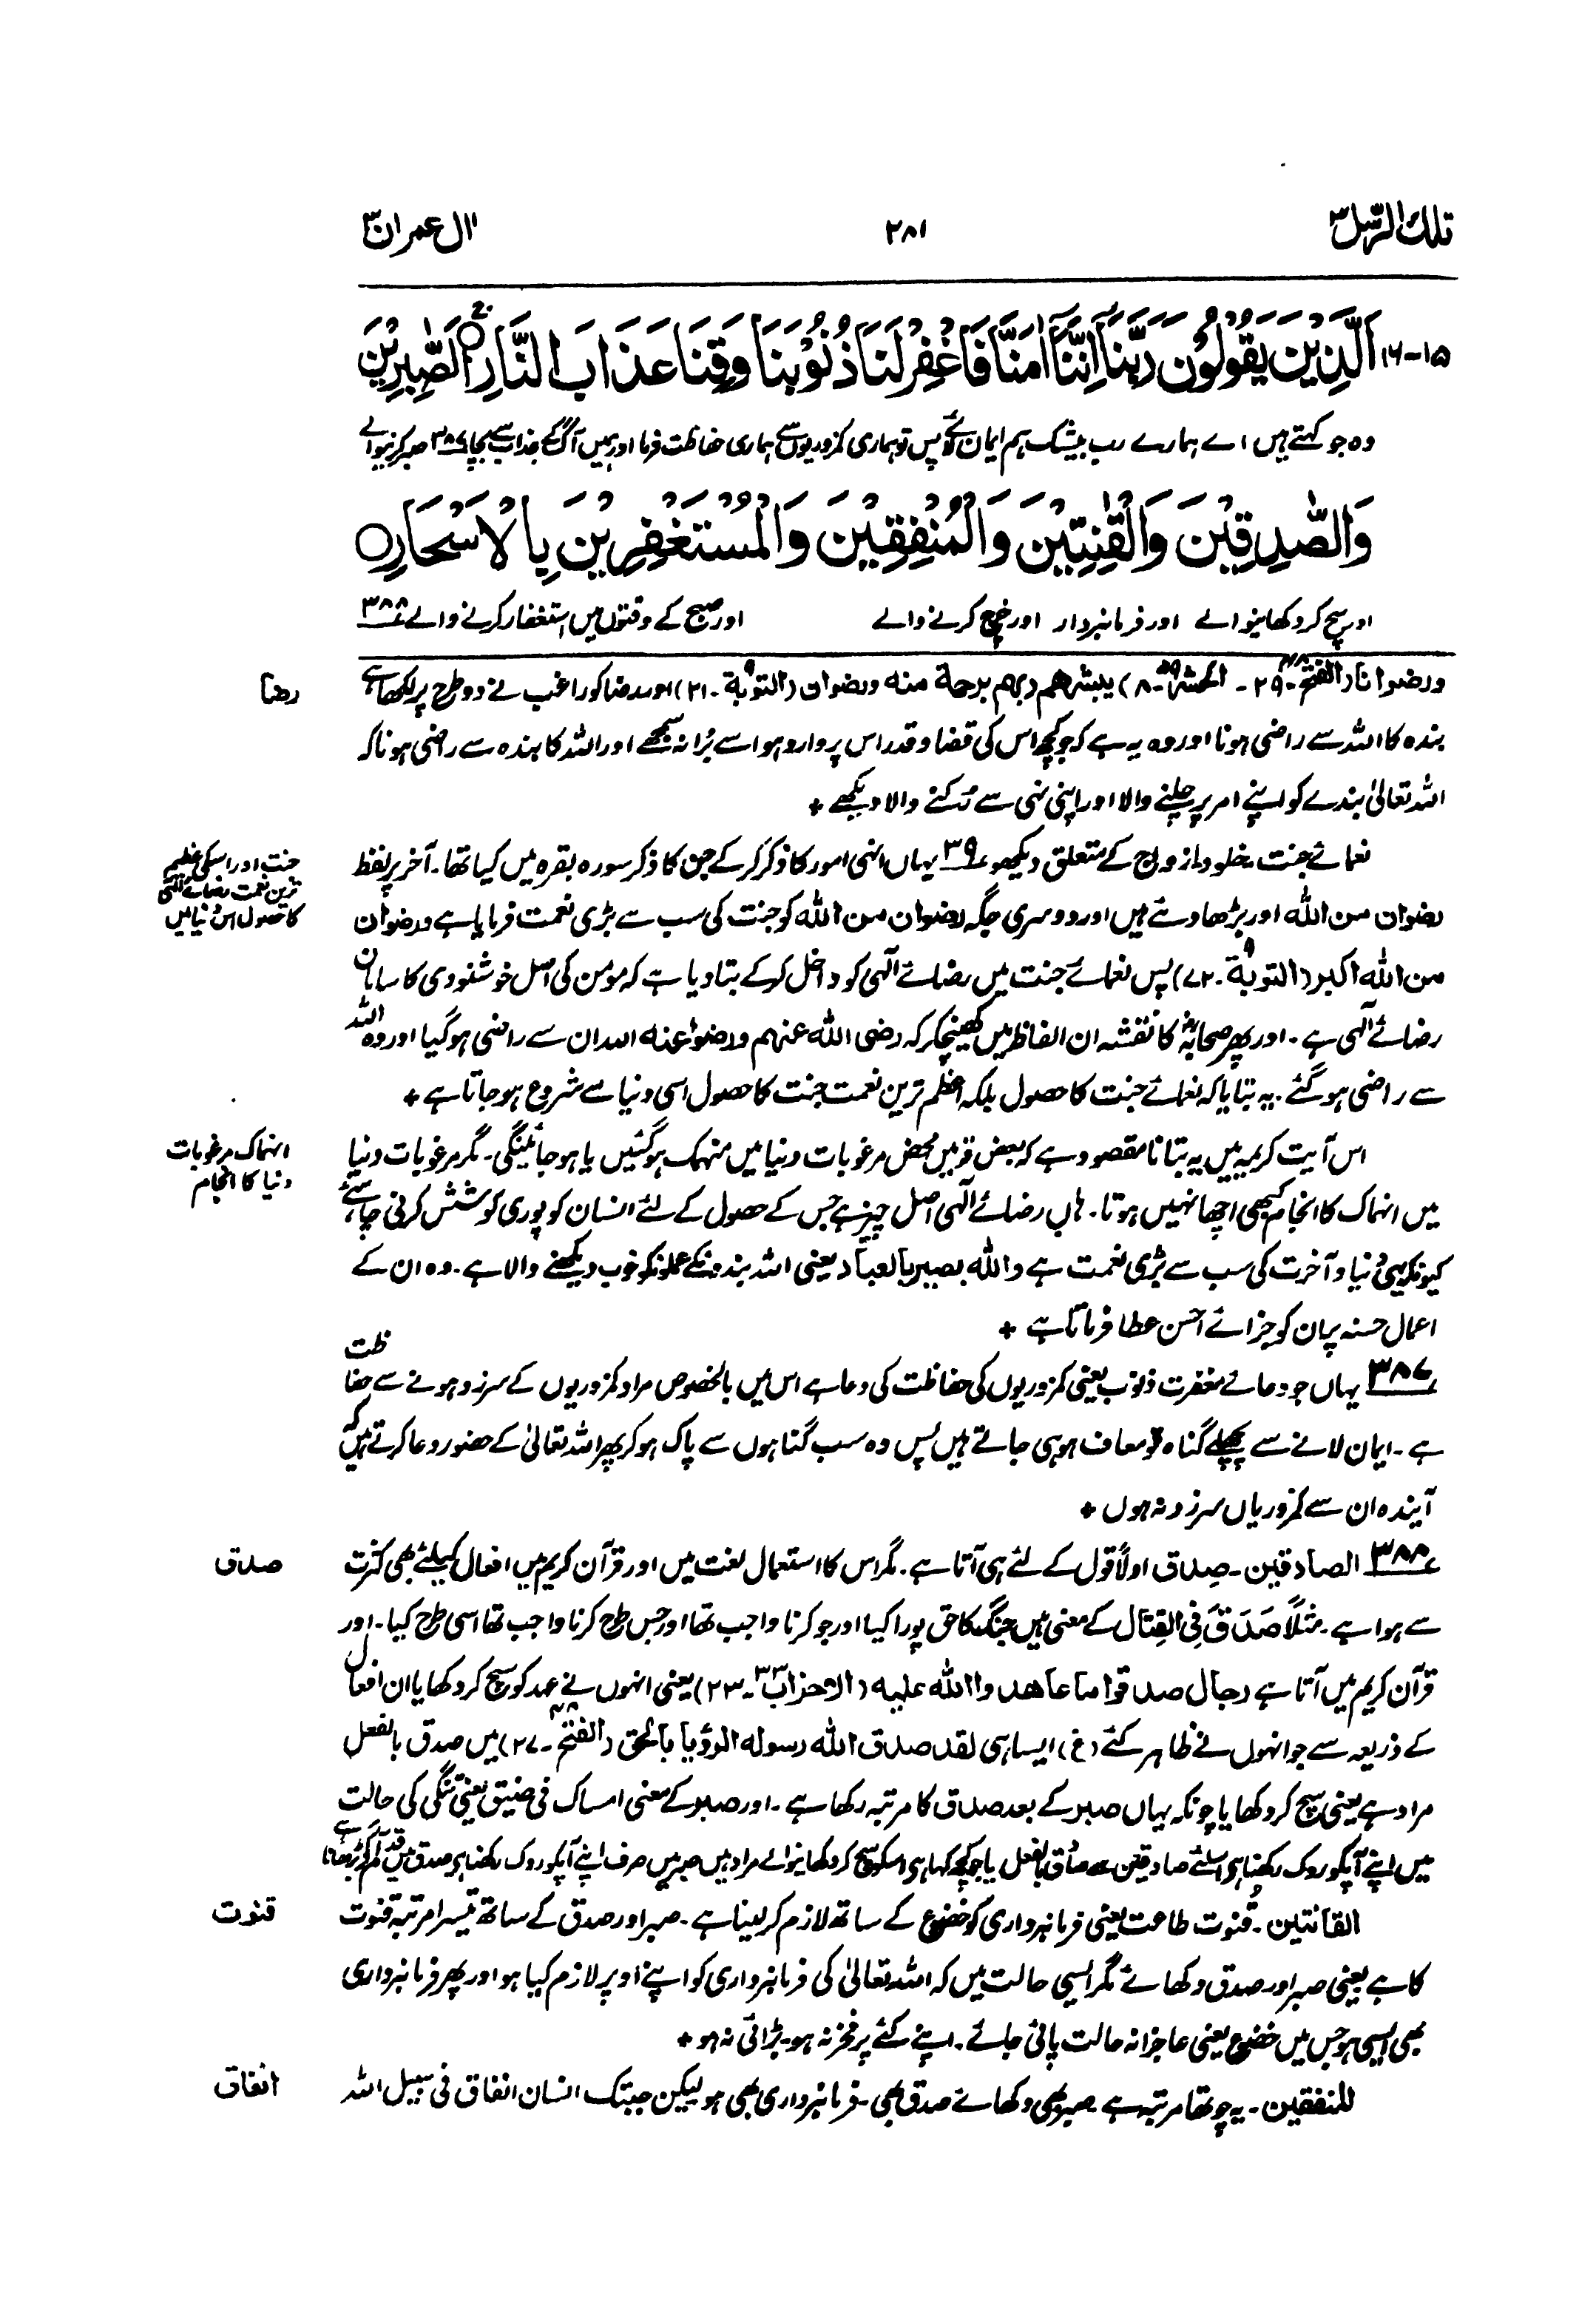 تلك الرسل ۳
۲۸۱
اٰل عمران ۳
۱۵-۱۶ اَلَّذِیْنَ یَقُوْلُوْنَ رَبَّنَاۤ اِنَّنَاۤ اٰمَنَّا فَاغْفِرْ لَنَا ذُنُوْبَنَا وَقِنَا عَذَابَ النَّارِ ۝ اَلصّٰبِرِیْنَ
وہ جو کہتے ہیں اے ہمارے رب بیشک ہم ایمان لائے پس تو ہماری کمزوریوں سے ہماری حفاظت فرما اور ہمیں آگ کے عذاب سے بچا ۳۸۷ صبر کرنیوالے
وَالصّٰدِقِیْنَ وَالْقٰنِتِیْنَ وَالْمُنْفِقِیْنَ وَالْمُسْتَغْفِرِیْنَ بِالْاَسْحَارِ ۝
اور سچ کر دکھانیوالے اور فرمانبردار اور خرچ کرنے والے اور صبح کے وقتوں میں استغفار کرنے والے ۳۸۸
رضا
ورضوانا (الفتح ۴۸-۲۹ - الحشر ۵۹-۸) یبشرھم ربھم برحمة منه ورضوان (التوبة ۹-۲۱) اور رضا کو راغب نے دو طرح پر لکھا ہے
بندہ کا اللہ سے راضی ہونا اور وہ یہ ہے کہ جو کچھ اس کی قضا و قدر اس پر وارد ہو اسے بُرا نہ سمجھے اور اللہ کا بندہ سے راضی ہونا کہ
اللہ تعالیٰ بندے کو اپنے امر پر چلنے والا اور اپنی نہی سے رُکنے والا دیکھے +
جنت اور اسکی عظیم
ترین نعمت رضائے الٰہی
کا حصول اس دنیا میں
نعمائے جنت، خلود و ازواج کے متعلق دیکھو ۳۹ یہاں انہی امور کا ذکر کرکے جن کا ذکر سورہ بقرہ میں کیا تھا۔ آخر پر لفظ
رضوان من اللہ اور بڑھا دئے ہیں اور دوسری جگہ رضوان من اللہ کو جنت کی سب سے بڑی نعمت فرمایا ہے ورضوان
من اللہ اکبر (التوبة ۹-۷۲) پس نعمائے جنت میں رضائے الٰہی کو داخل کرکے بتا دیا ہے کہ مومن کی اصل خوشنودی کا سامان
رضائے الٰہی ہے۔ اور پھر صحابہؓ کا نقشہ ان الفاظ میں کھینچکر کہ رضی اللہ عنھم ورضوا عنه اللہ ان سے راضی ہو گیا اور وہ اللہ
سے راضی ہو گئے۔ یہ بتایا کہ نعمائے جنت کا حصول بلکہ اعظم ترین نعمت جنت کا حصول اسی دنیا سے شروع ہو جاتا ہے +
انہماک مرغوبات
دنیا کا انجام
اس آیت کریمہ میں یہ بتانا مقصود ہے کہ بعض قومیں محض مرغوبات دنیا میں منہمک ہو گئیں یا ہو جائینگی۔ مگر مرغوبات دنیا
میں انہماک کا انجام کبھی اچھا نہیں ہوتا۔ ہاں رضائے الٰہی اصل چیز ہے جس کے حصول کے لئے انسان کو پوری کوشش کرنی چاہئے،
کیونکہ یہی دُنیا و آخرت کی سب سے بڑی نعمت ہے واللہ بصیر بالعباد یعنی اللہ بندونکے عملونکو خوب دیکھنے والا ہے۔ وہ ان کے
اعمال حسنہ پر ان کو جزائے احسن عطا فرماتا ہے +
۳۸۷ یہاں جو دعائے مغفرت ذنوب یعنی کمزوریوں کی حفاظت کی دعا ہے اس میں بالخصوص مراد کمزوریوں کے سرزد ہونے سے حفاظت
ہے۔ ایمان لانے سے پچھلے گناہ تو معاف ہو ہی جاتے ہیں پس وہ سب گناہوں سے پاک ہو کر پھر اللہ تعالیٰ کے حضور دعا کرتے ہیں کہ
آیندہ ان سے کمزوریاں سرزد نہ ہوں +
صدق
۳۸۸ الصادقین۔ صِدق اولاً قول کے لئے ہی آتا ہے۔ مگر اس کا استعمال لغت میں اور قرآن کریم میں افعال کیلئے بھی کثرت
سے ہوا ہے۔ مثلاً صَدَقَ فِی القِتال کے معنی ہیں جنگ کا حق پورا کیا اور جو کرنا واجب تھا اور جس طرح کرنا واجب تھا اسی طرح کیا۔ اور
قرآن کریم میں آتا ہے رجال صدقوا ما عاھدوا اللہ علیه (الاحزاب ۳۳-۲۳) یعنی انہوں نے عہد کو سچ کر دکھایا ان افعال
کے ذریعہ سے جو انہوں نے ظاہر کئے (غ) ایسا ہی لقد صدق اللہ رسوله الرؤیا بالحق (الفتح ۴۸-۲۷) میں صدق بالفعل
مراد ہے یعنی سچ کر دکھایا چونکہ یہاں صبر کے بعد صدق کا مرتبہ رکھا ہے۔ اور صبر کے معنی امساک فی ضیق یعنی تنگی کی حالت
میں اپنے آپکو روک رکھنا ہے اسلئے صادقین سے صدق بالفعل یا جو کچھ کہا ہے اسکو سچ کر دکھانیوالے مراد ہیں صبر میں صرف اپنے آپکو روک رکھنا ہے صدق میں قدم آگے بڑھانا ہے
قنوت
القانتین۔ قُنوت طاعت یعنی فرمانبرداری کو خضوع کے ساتھ لازم کر لینا ہے۔ صبر اور صدق کے ساتھ تیسرا مرتبہ قنوت
کا ہے یعنی صبر اور صدق دکھائے مگر ایسی حالت میں کہ اللہ تعالیٰ کی فرمانبرداری کو اپنے اوپر لازم کیا ہو اور پھر فرمانبرداری
بھی ایسی ہو جس میں خضوع یعنی عاجزانہ حالت پائی جائے۔ اپنے کئے پر فخر نہ ہو۔ بڑائی نہ ہو +
انفاق
المنفقین۔ یہ چوتھا مرتبہ ہے صبر بھی دکھائے صدق بھی۔ فرمانبرداری بھی ہو لیکن جبتک انسان انفاق فی سبیل اللہ